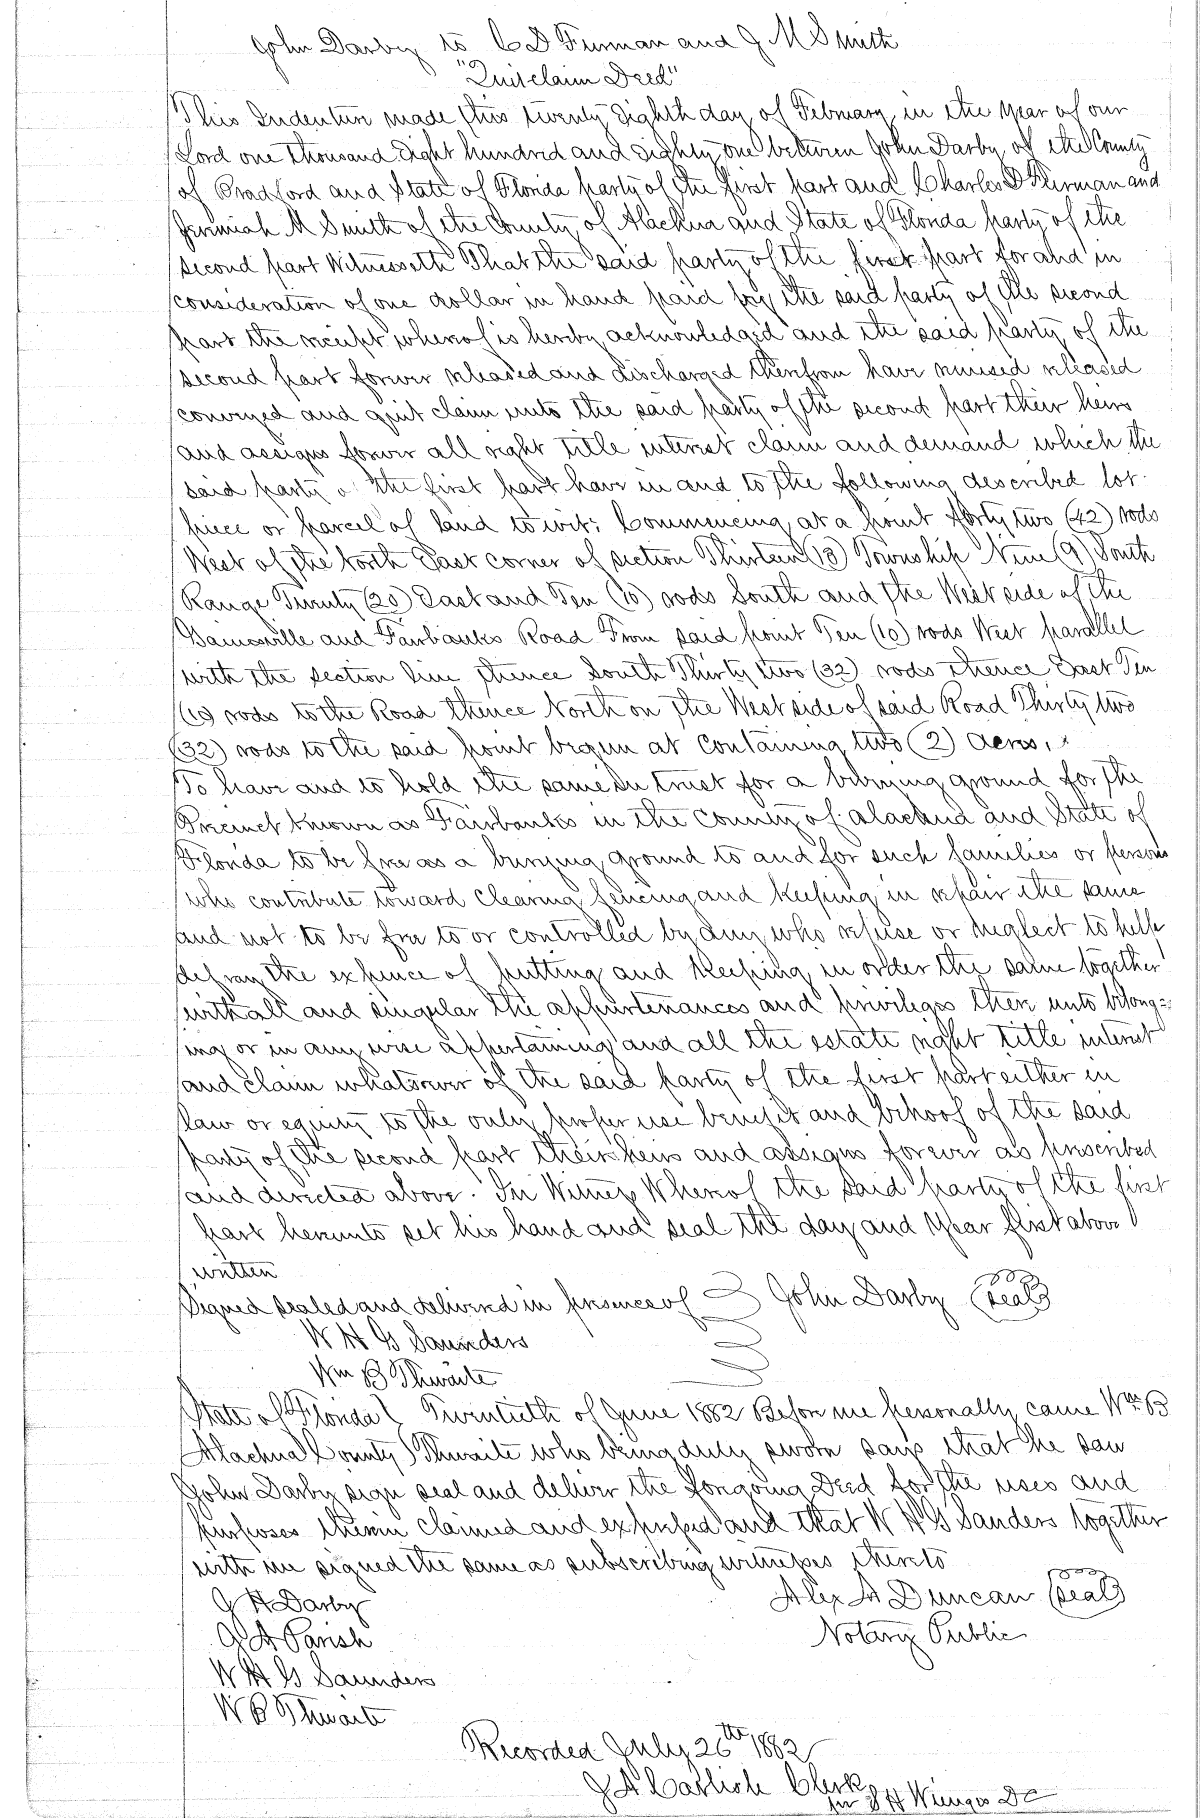 John Darby to C D Furman and J M Smith
"Quitclaim Deed"
This Indenture made this twenty Eighth day of February in the year of our
Lord one thousand Eight hundred and Eighty one between John Darby of the County
of Bradford and State of Florida party of the first part and Charles D Furman and
Jeremiah M Smith of the County of Alachua and State of Florida party of the
second part Witnesseth That the said party of the first part for and in
consideration of one dollar in hand paid by the said party of the second
part the receipt whereof is hereby acknowledged and the said party of the
second part forever released and discharged therefrom have remised released
conveyed and quit claim unto the said party of the second part their heirs
and assigns forever all right title interest claim and demand which the
said party o the first part have in and to the following described lot
piece or parcel of land to wit: Commencing at a point forty two (42) rods
West of the North East corner of section Thirteen (13) Township Nine (9) South
Range Twenty (20) East and Ten (10) rods South and the West side of the
Gainesville and Fairbanks Road From said point Ten (10) rods West parallel
with the section line thence South Thirty two (32) rods thence East Ten
(10) rods to the Road thence North on the West side of said Road Thirty two
(32) rods to the said point begun at containing two (2) acres.
To have and to hold the same in trust for a burying ground for the
Precinct known as Fairbanks in the County of Alachua and State of
Florida to be free as a burying ground to and for such families or persons
who contribute toward clearing fencing and keeping in repair the same
and not to be free to or controlled by any who refuse or neglect to help
defray the expence of putting and keeping in order the same together
with all and singular the appurtenances and privileges there unto belong=
ing or in any wise appertaining and all the estate right title interest
and claim whatsoever of the said party of the first part either in
law or equity to the only proper use benefit and behoof of the said
party of the second part their heirs and assigns forever as prescribed
and directed above. In Witness Whereof the said party of the first
part hereunto set his hand and seal the day and year first above
written
Signed sealed and delivered in presence of John Darby (seal)
W H G Saunders
Wm B Thwaite
State of Florida Twentieth of June 1882 Before me personally came Wm B
Alachua County Thwaite who being duly sworn says that he saw
John Darby sign seal and deliver the foregoing Deed for the uses and
purposes therein claimed and expressed and that W H G Sanders together
with me signed the same as subscribing witnesses thereto
J H Darby Alex A Duncan (seal)
G A Parish Notary Public
W H G Saunders
W B Thwaite
Recorded July 26th 1882
J A Carlisle Clerk
per S H Wienges DC